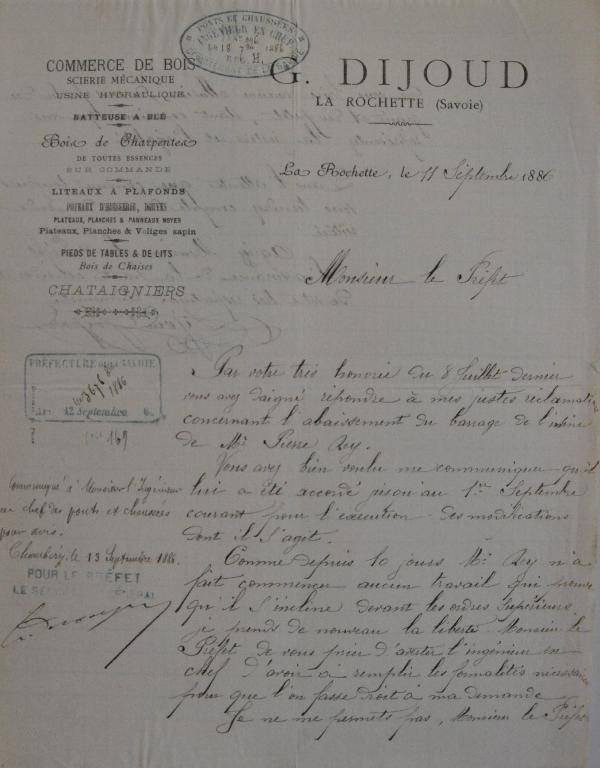 PONTS ET CHAUSSÉES
INGÉNIEUR EN CHEF
COMMERCE DE BOIS
SCIERIE MÉCANIQUE
USINE HYDRAULIQUE
BATTEUSE A BLÉ
Bois de Charpentes
DE TOUTES ESSENCES
SUR COMMANDE
LITEAUX A PLAFONDS
POTEAUX D'HUISSERIE, DOUVES
PLATEAUX, PLANCHES & PANNEAUX NOYER
Plateaux, Planches & Voliges sapin
PIEDS DE TABLES & DE LITS
Bois de Chaises
CHATAIGNIERS
G. DIJOUD
LA ROCHETTE (Savoie)
La Rochette, le 11 Septembre 1886
Monsieur le Préfet
PRÉFECTURE DE LA SAVOIE
12 Septembre
Par votre très honorée du 8 Juillet dernier
vous avez daigné répondre à mes justes réclamations
concernant l'abaissement du barrage de l'usine
de Mr Pierre Rey.
Vous avez bien voulu me communiquer qu'il
lui a été accordé jusqu'au 1er Septembre
courant pour l'exécution des modifications
dont il s'agit.
Comme depuis 10 jours Mr Rey n'a
fait commencer aucun travail qui prouve
qu'il s'incline devant les ordres supérieurs
je prends de nouveau la liberté Monsieur le
Préfet de vous prier d'avertir l'ingénieur en
chef d'avoir à remplir les formalités nécessaires
pour que l'on fasse droit à ma demande
Je ne me permets pas, Monsieur le Préfet
Communiqué à Monsieur l'Ingénieur
en chef des ponts et chaussées
pour avis.
Chambéry, le 13 Septembre 1886.
POUR LE PRÉFET
LE SECRÉTAIRE GÉNÉRAL